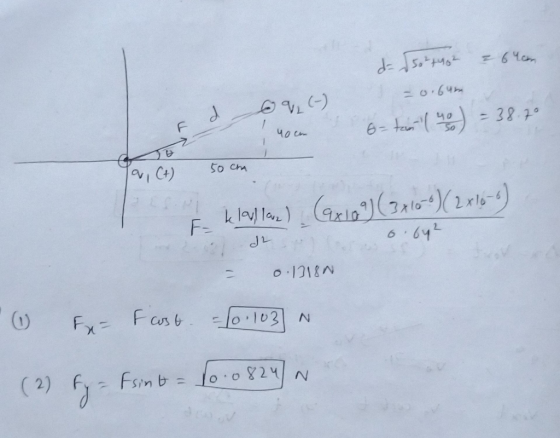 d = √50²+40² = 64cm
= 0.64m
θ = tan⁻¹(40/50) = 38.7°
F
d
q₂ (-)
40 cm
θ
q₁ (+)
50 cm
F = k|q₁||q₂|/d² = (9×10⁹)(3×10⁻⁶)(2×10⁻⁶)/0.64²
= 0.1318N
(1) Fx = F cosθ = 0.103 N
(2) Fy = F sinθ = 0.0824 N